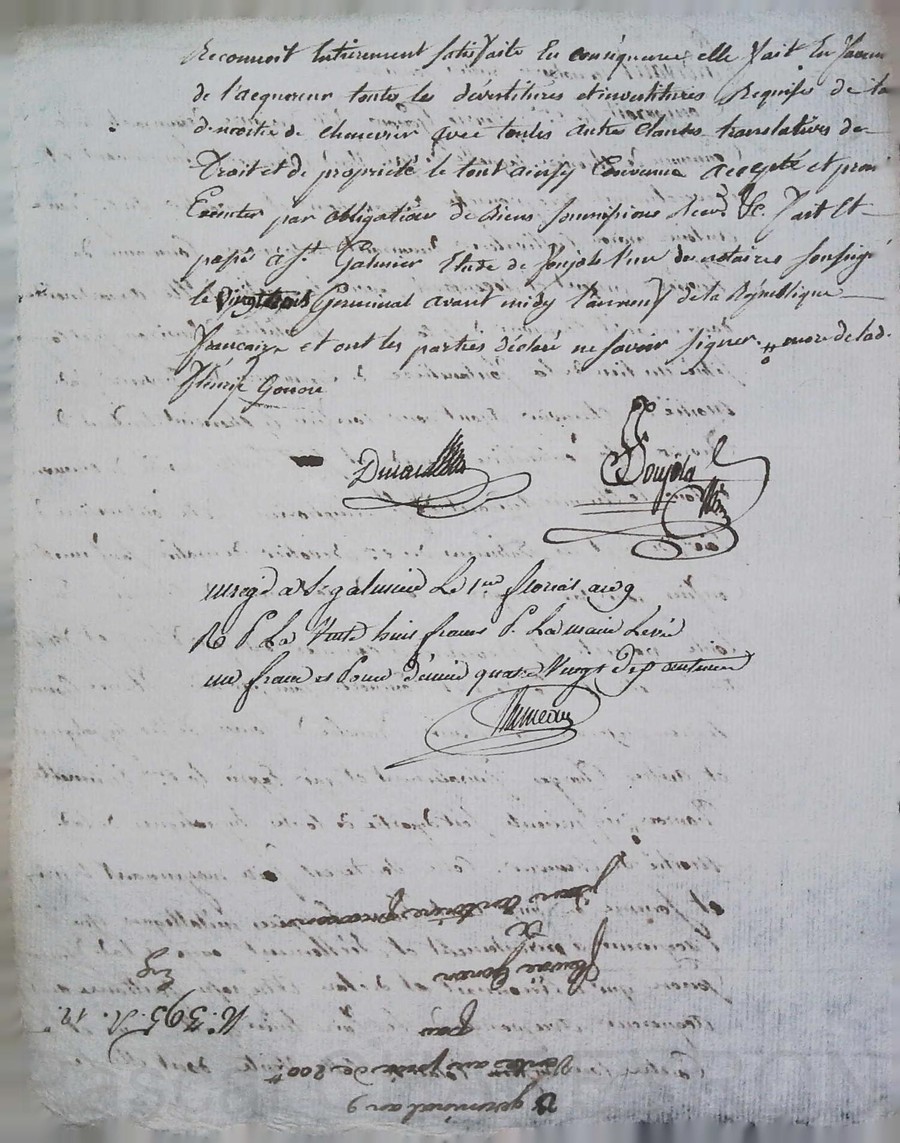 Reconnoit Entierement satisfaite En consequence elle fait En faveur
de l'acquereur toutes les devestitures et investitures Requises de la
de moitié de chenevier avec toutes autre Clauses translatives de
Droit et de propriété le tout ainsy Convenu accepté et promi
Executer par obligation de Biens soumissions Reon. &c. fait Et
passé à St. Galmier Etude de Poujola l'un des notaires soussigé
le vingt trois Germinal avant midy l'an neuf de la République
francaise et ont les parties déclaré ne savoir signer
fleurie Gonon
Poujola
Nre
enregé a St galmier Le 1er floreal an 9
R P. La Vente huit francs P. La main Levée
un franc et Pour décime quatre Vingt dix centimes
23 germinal an 9
Vente au prix de 200tt
par
fleurie Gonon
à
Jean Antoine
N. 395. R. 12
Eng